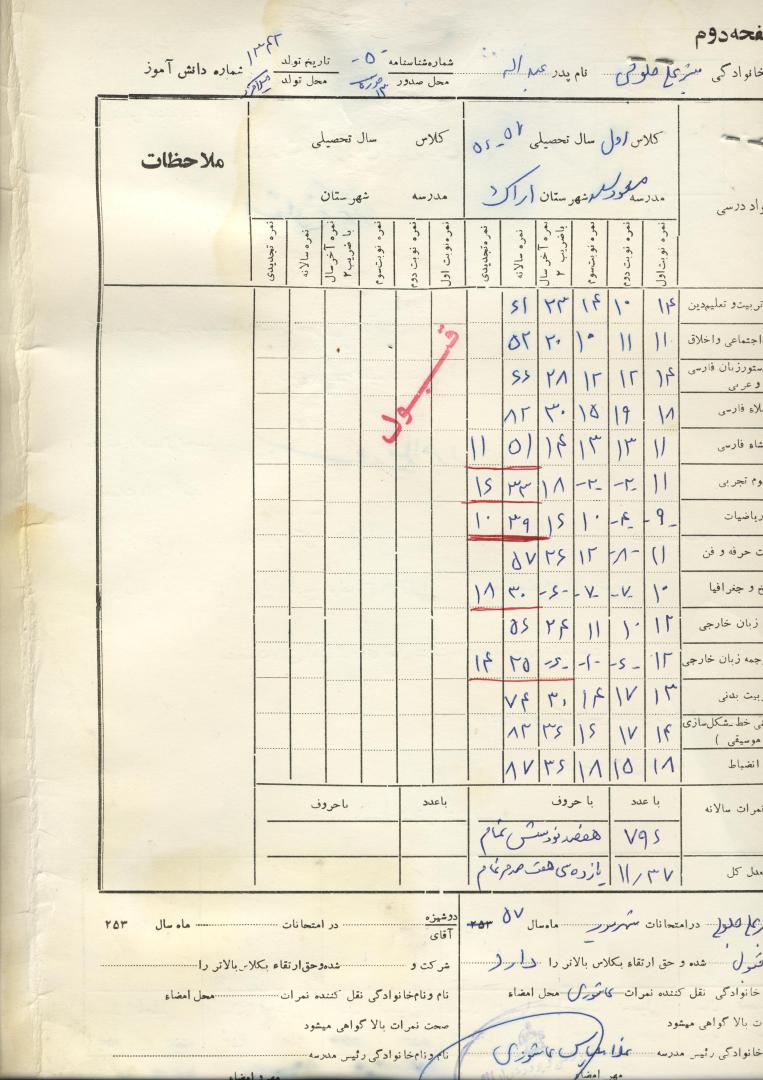 صفحه دوم
خانوادگی نام پدر عبداله شماره شناسنامه -۵- تاریخ تولد ۱۳۴۲ شماره دانش آموز
محل صدور محل تولد
کلاس اول سال تحصیلی ۵۷-۵۶ کلاس سال تحصیلی ملاحظات
مدرسه شهرستان اراک مدرسه شهرستان
مواد درسی
نمره نوبت اول نمره نوبت دوم نمره نوبت سوم نمره آخر سال با ضریب ۲ نمره سالانه نمره تجدیدی نمره نوبت اول نمره نوبت دوم نمره نوبت سوم نمره آخر سال با ضریب ۲ نمره سالانه نمره تجدیدی
تربیت و تعلیم دین ۱۴ ۱۰ ۱۴ ۲۳ ۶۱
اجتماعی و اخلاق ۱۱ ۱۱ ۱۰ ۲۰ ۵۲
دستور زبان فارسی و عربی ۱۴ ۱۲ ۱۲ ۲۸ ۶۶
املاء فارسی ۱۸ ۱۹ ۱۵ ۳۰ ۸۲
انشاء فارسی ۱۱ ۱۳ ۱۳ ۱۴ ۵۱ ۱۱
علوم تجربی ۱۱ -۲- -۲- ۱۸ ۳۳ ۱۶
ریاضیات -۹- -۴- ۱۰ ۱۶ ۳۹ ۱۰
حرفه و فن ۱۱ -۸- ۱۲ ۲۶ ۵۷
و جغرافیا ۱۰ -۷- -۷- -۶- ۳۰ ۱۸
زبان خارجی ۱۲ ۱۰ ۱۱ ۲۴ ۵۶
ترجمه زبان خارجی ۱۲ -۶- -۱- -۶- ۲۵ ۱۴
تربیت بدنی ۱۳ ۱۷ ۱۴ ۳۰ ۷۴
خط ـ شکل‌سازی موسیقی ) ۱۴ ۱۷ ۱۶ ۳۶ ۸۳
انضباط ۱۸ ۱۵ ۱۸ ۳۶ ۸۷
قبول
نمرات سالانه با عدد با حروف باعدد باحروف
۷۹۶ هفصد نود شش تمام
معدل کل ۱۱/۳۷ یازده سی هفت صدم تمام
در امتحانات شهریور ماه سال ۲۵۳ ۵۷ دوشیزه آقای در امتحانات ماه سال ۲۵۳
قبول شده و حق ارتقاء بکلاس بالاتر را دارد شرکت و شده و حق ارتقاء بکلاس بالاتر را
خانوادگی نقل کننده نمرات عاشوری محل امضاء نام و نام خانوادگی نقل کننده نمرات محل امضاء
بالا گواهی میشود صحت نمرات بالا گواهی میشود
خانوادگی رئیس مدرسه عاشوری نام و نام خانوادگی رئیس مدرسه
مهر امضاء مهر و امضاء